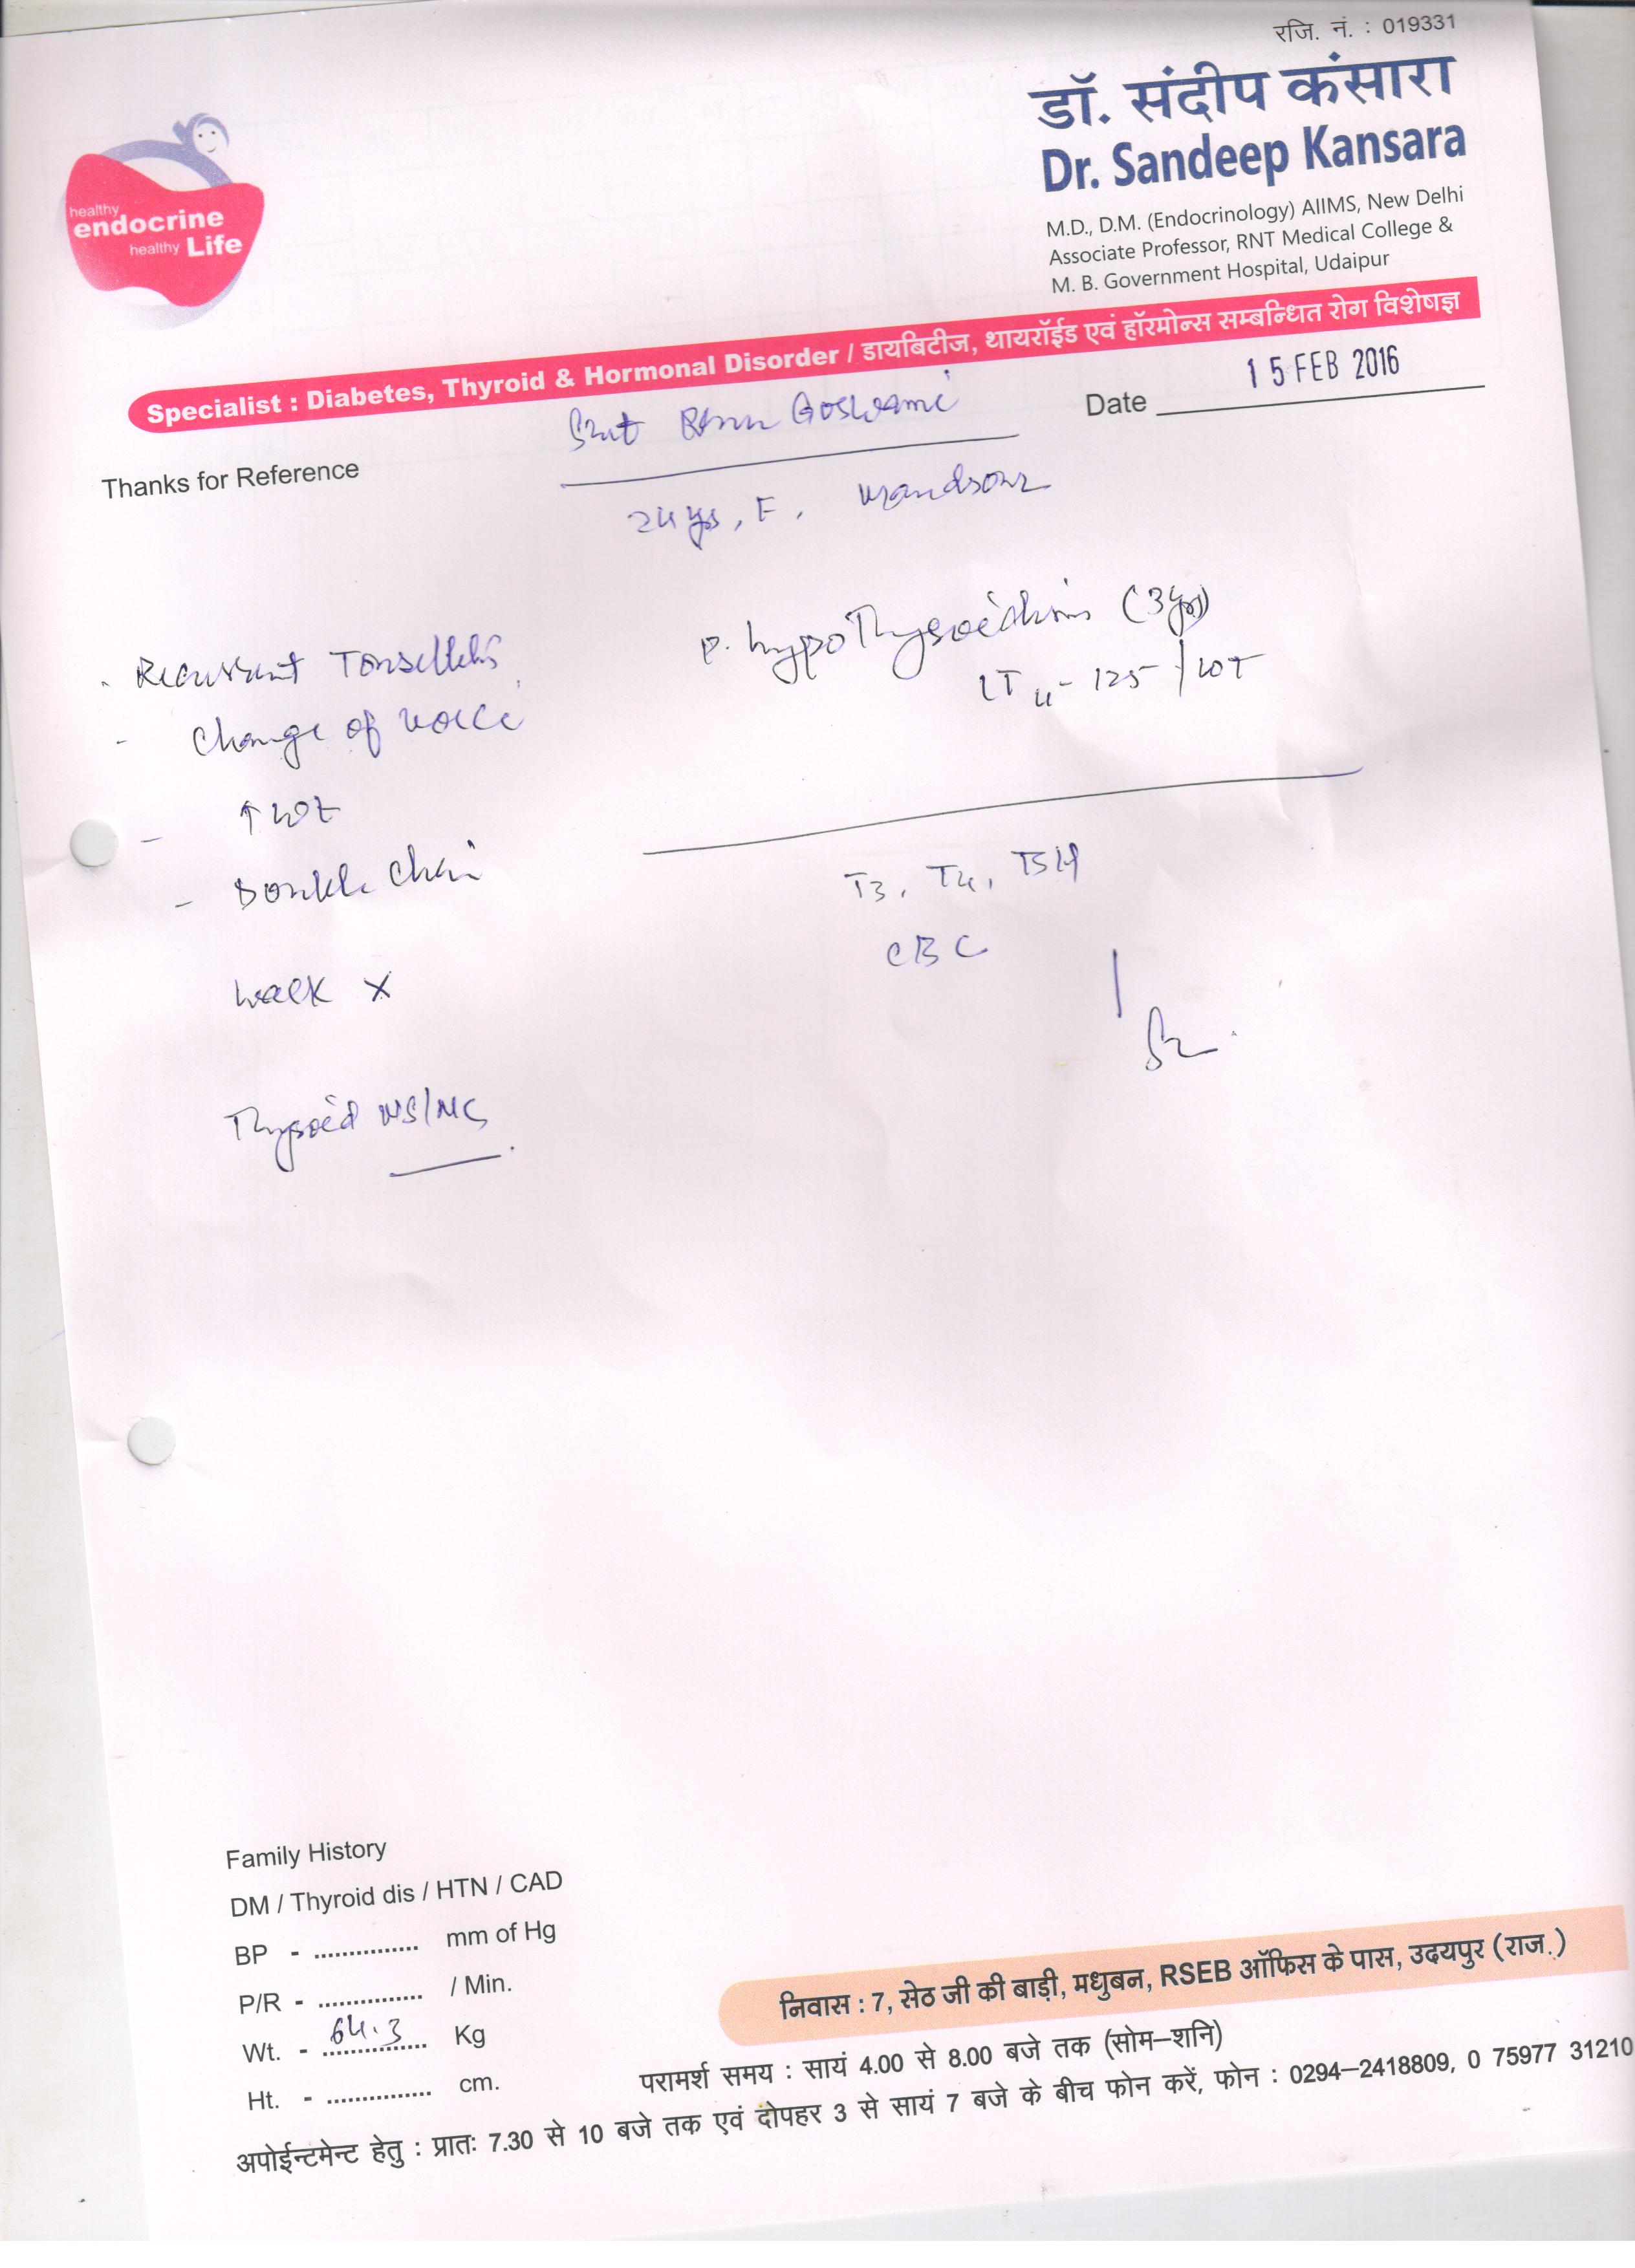 रजि. नं. : 019331
डॉ. संदीप कंसारा
Dr. Sandeep Kansara
M.D., D.M. (Endocrinology) AIIMS, New Delhi
Associate Professor, RNT Medical College &
M. B. Government Hospital, Udaipur
healthy
endocrine
healthy Life
Specialist : Diabetes, Thyroid & Hormonal Disorder / डायबिटीज, थायरॉईड एवं हॉरमोन्स सम्बन्धित रोग विशेषज्ञ
Date 15 FEB 2016
Smt Goswami
Thanks for Reference
24 yrs, F, Mandsour
P. hypothyroidism (3 yrs)
LT4 - 125 / wt
- Recurrent Tonsillitis
- Change of voice
- ↑ wt
- Double chin
walk X
Thyroid NS/NC
T3, T4, TSH
CBC
Family History
DM / Thyroid dis / HTN / CAD
BP - ............... mm of Hg
P/R - ............... / Min.
Wt. - 64.3 Kg
Ht. - ............... cm.
निवास : 7, सेठ जी की बाड़ी, मधुबन, RSEB ऑफिस के पास, उदयपुर (राज.)
परामर्श समय : सायं 4.00 से 8.00 बजे तक (सोम–शनि)
अपोईन्टमेन्ट हेतु : प्रातः 7.30 से 10 बजे तक एवं दोपहर 3 से सायं 7 बजे के बीच फोन करें, फोन : 0294–2418809, 0 75977 31210